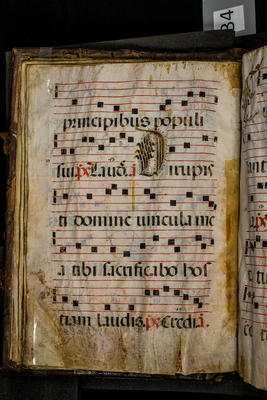 84
principibus populi
sui. ps. Laud. a Dirupis
ti domine uincula me
a tibi sacrificabo hos
tiam laudis. ps. Credi. a.